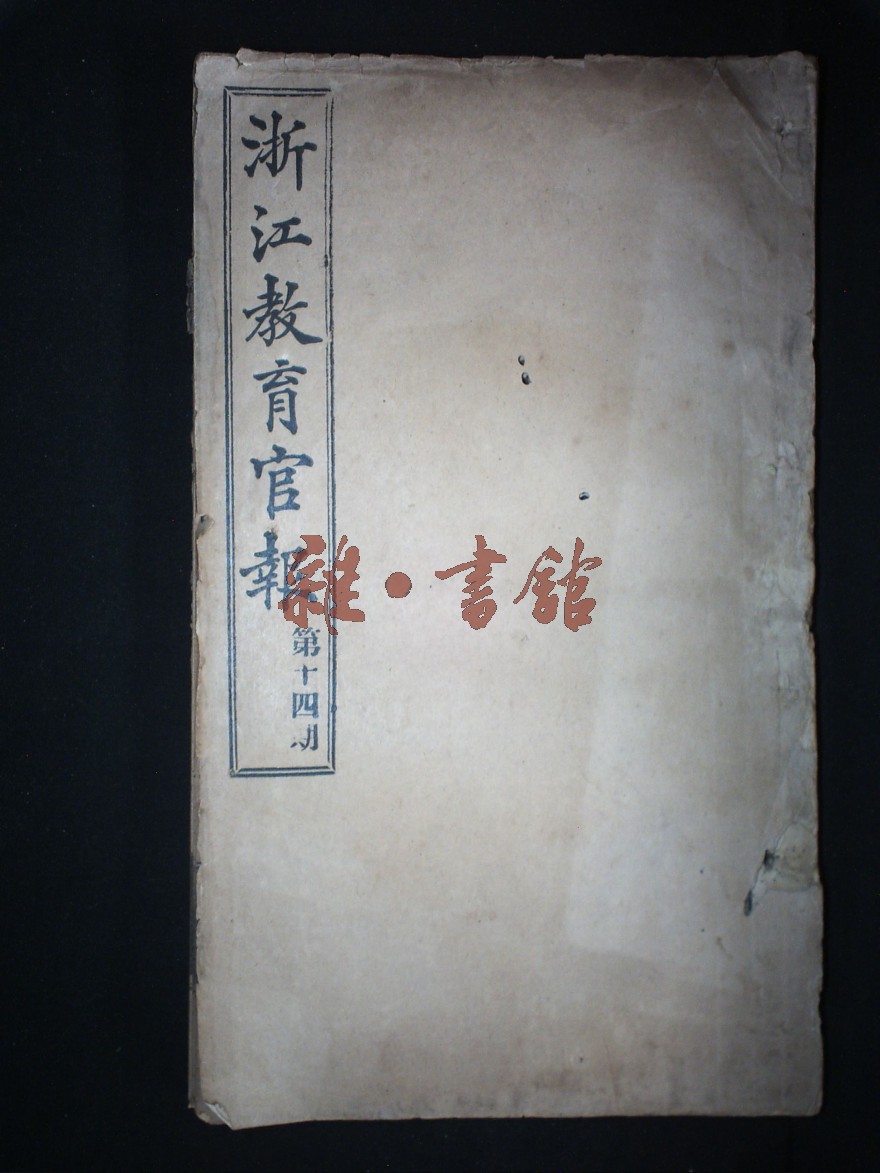 浙江教育官報
第十四期
雜·書館